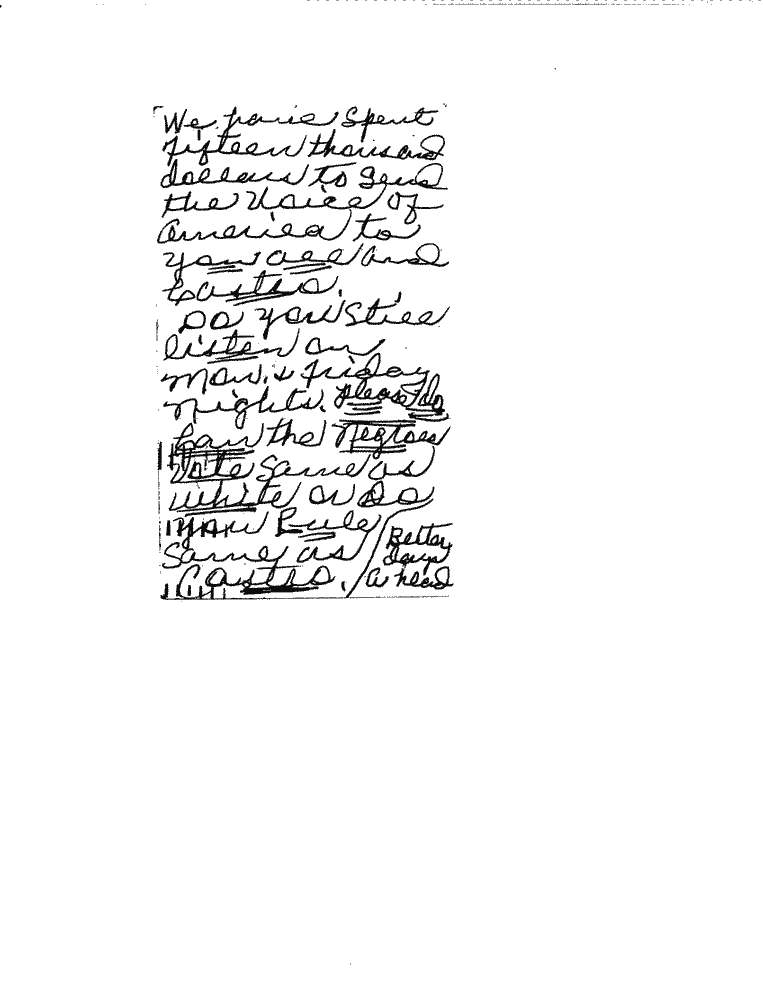 We have Spent
fifteen thousand
dollars to Send
the Voice of
America to
you all and
Castro.
Do you Still
listen on
Mon. & Friday
nights. Please do
Can the Negroes
Vote Same as
white or do
you Rule
Same as
Castro.
Better
days
a head